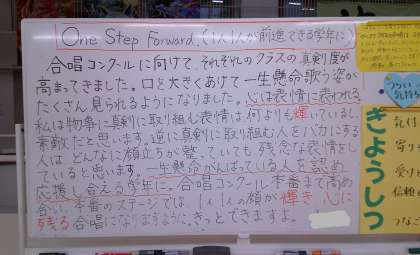 One Step Forward.(1人1人が前進できる学年に)
合唱コンクールに向けて、それぞれのクラスの真剣度が
高まってきました。口を大きくあけて一生懸命歌う姿が
たくさん見られるようになりました。心は表情に表われる
私は物事に真剣に取り組む表情は何よりも輝いているし、
素敵だと思います。逆に真剣に取り組む人をバカにする
人はどんなに顔立ちが整っていても残念な表情をし
ていると思います。一生懸命がんばっている人を認め
応援し合える学年に。合唱コンクール本番まで高め
合い、本番のステージでは1人1人の顔が輝き心に
残る合唱になりますように。きっとできますよ。
きょうしつ
気付
寄り
受け
信頼
つな